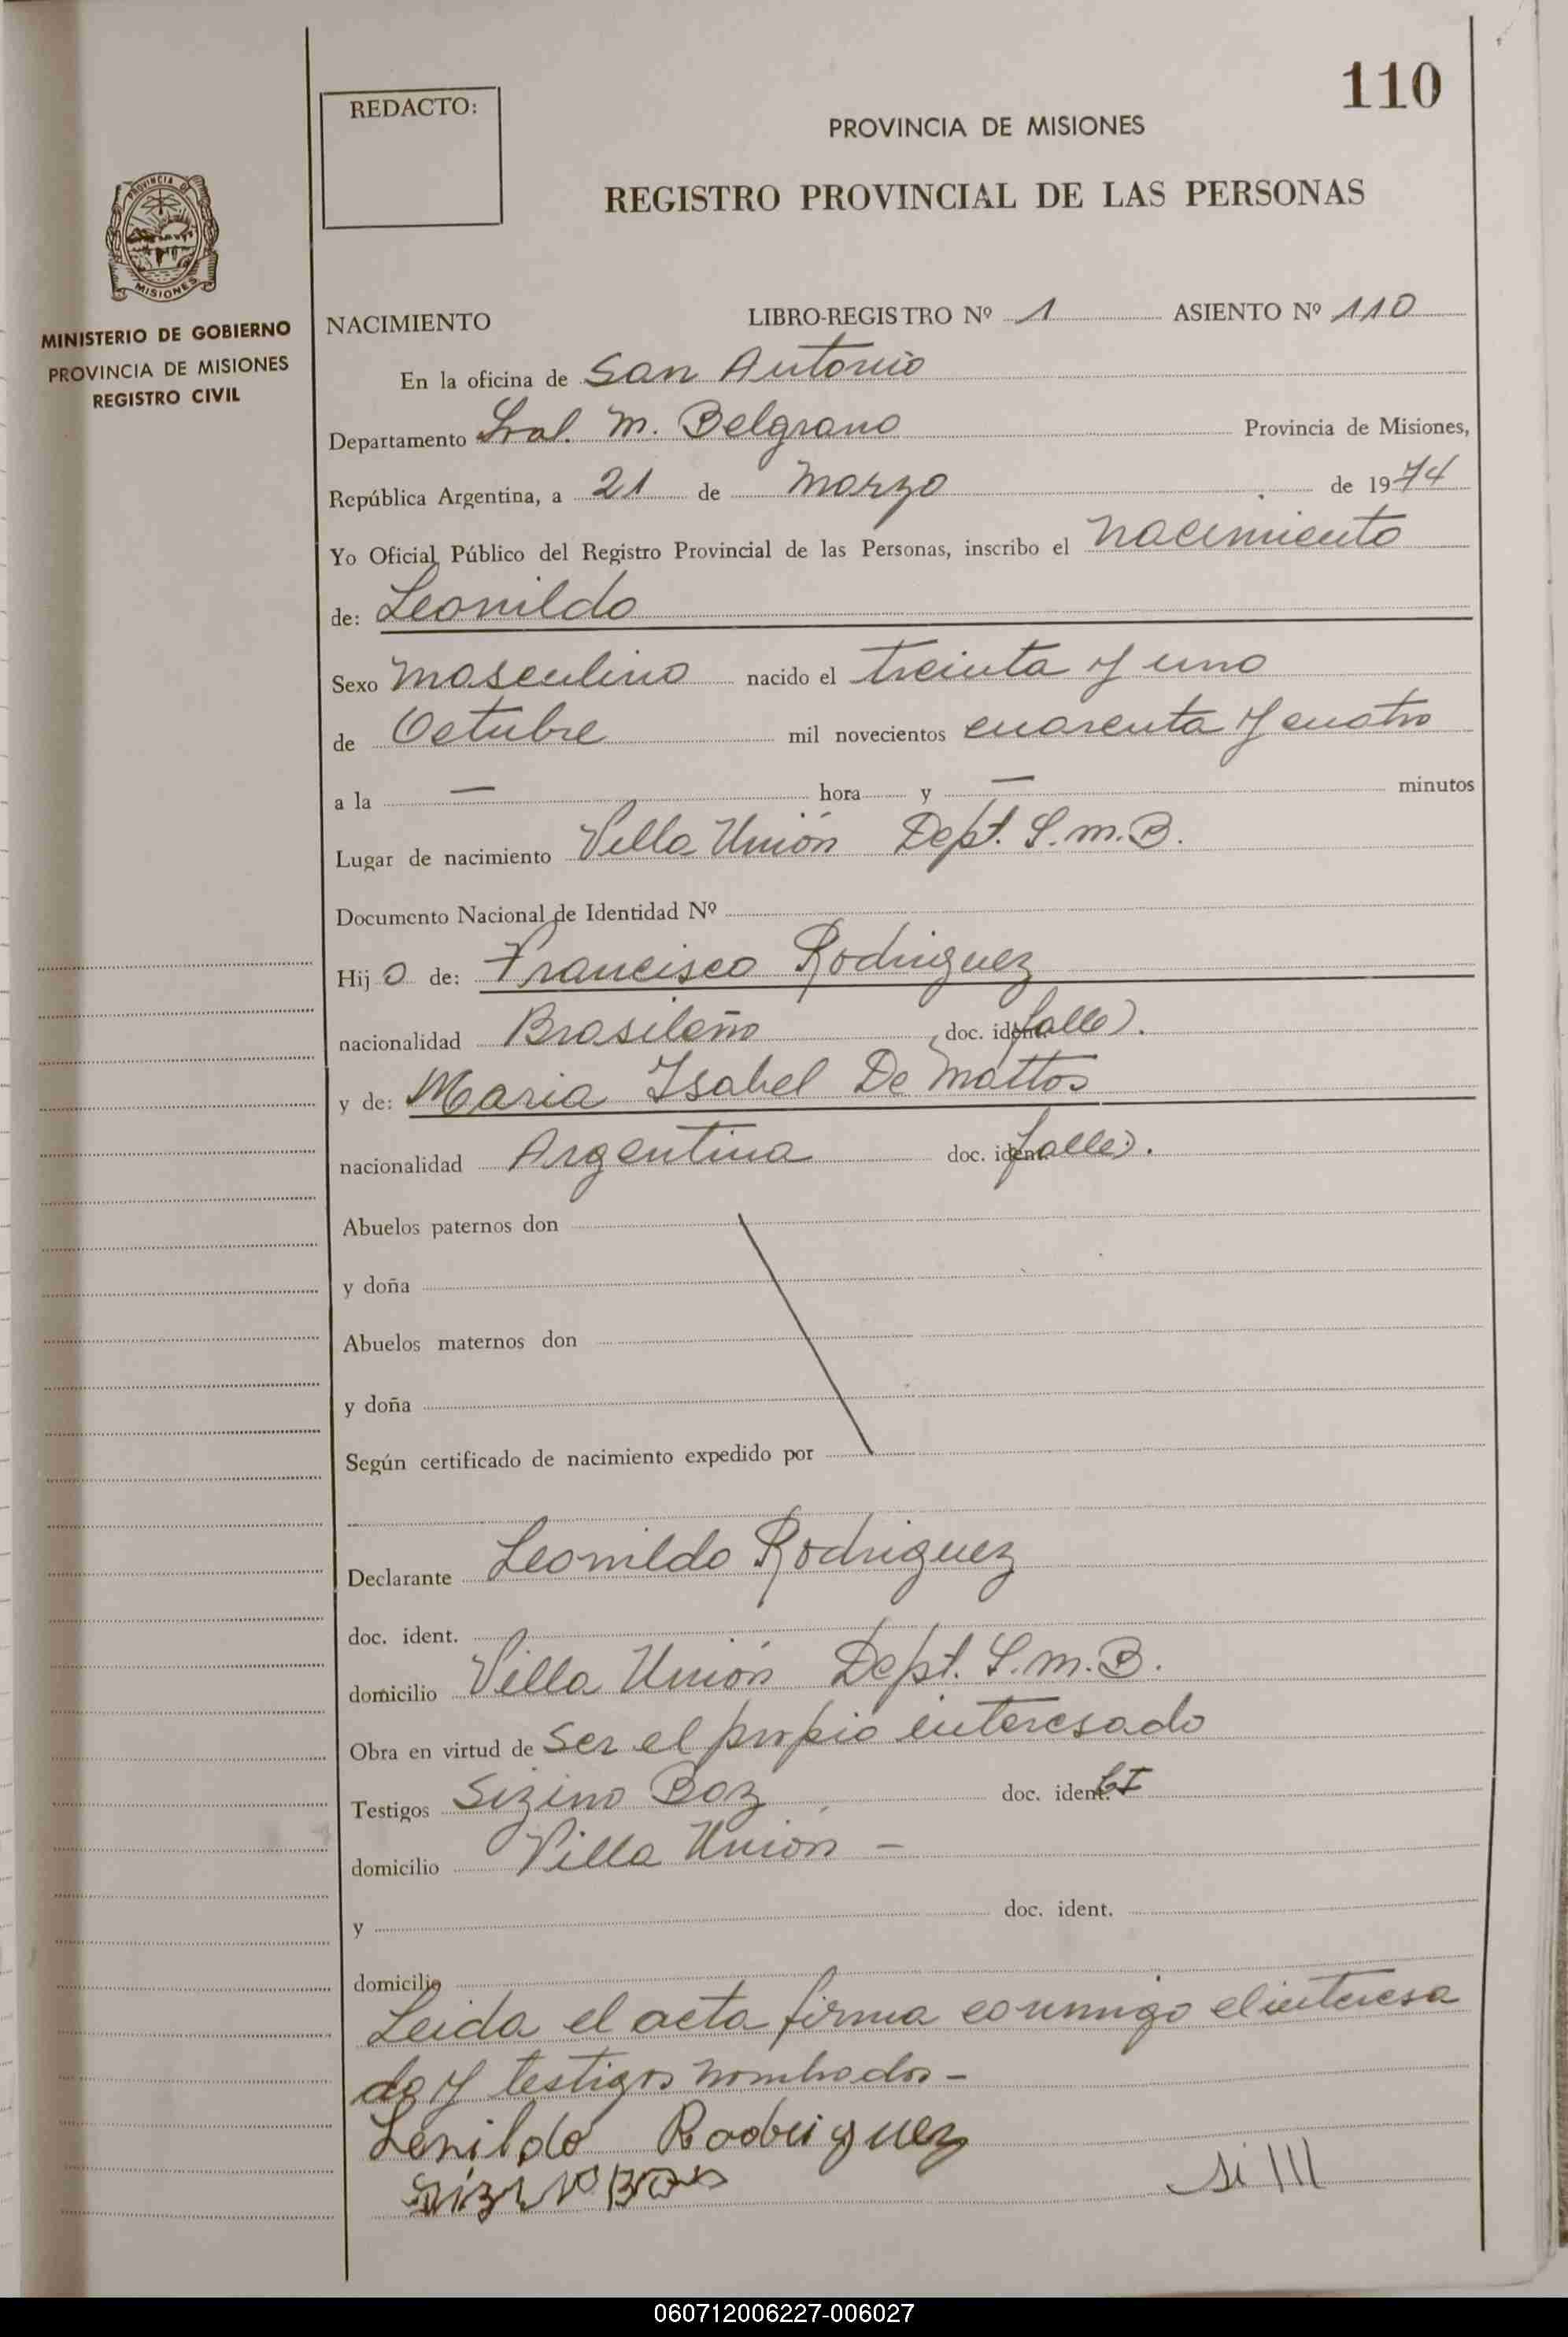 110
REDACTO:
PROVINCIA DE MISIONES
REGISTRO PROVINCIAL DE LAS PERSONAS
PROVINCIA DE
MISIONES
MINISTERIO DE GOBIERNO
PROVINCIA DE MISIONES
REGISTRO CIVIL
NACIMIENTO LIBRO-REGISTRO Nº 1 ASIENTO Nº 110
En la oficina de San Antonio
Departamento Gral. M. Belgrano Provincia de Misiones,
República Argentina, a 21 de Marzo de 1974
Yo Oficial Público del Registro Provincial de las Personas, inscribo el nacimiento
de: Leonildo
Sexo masculino nacido el treinta y uno
de Octubre mil novecientos cuarenta y cuatro
a la — hora y — minutos
Lugar de nacimiento Villa Unión Dept. G.M.B.
Documento Nacional de Identidad Nº
Hijo de: Francisco Rodriguez
nacionalidad Brasileño doc. ident. falle).
y de: Maria Isabel De Mattos
nacionalidad Argentina doc. ident. falle).
Abuelos paternos don
y doña
Abuelos maternos don
y doña
Según certificado de nacimiento expedido por
Declarante Leonildo Rodriguez
doc. ident.
domicilio Villa Unión Dept. G.M.B.
Obra en virtud de ser el propio interesado
Testigos Sizino Boz doc. ident. CI
domicilio Villa Unión –
y doc. ident.
domicilio
Leida el acta firma conmigo el interesa
do y testigos nombrados –
Lenildo Rodriguez